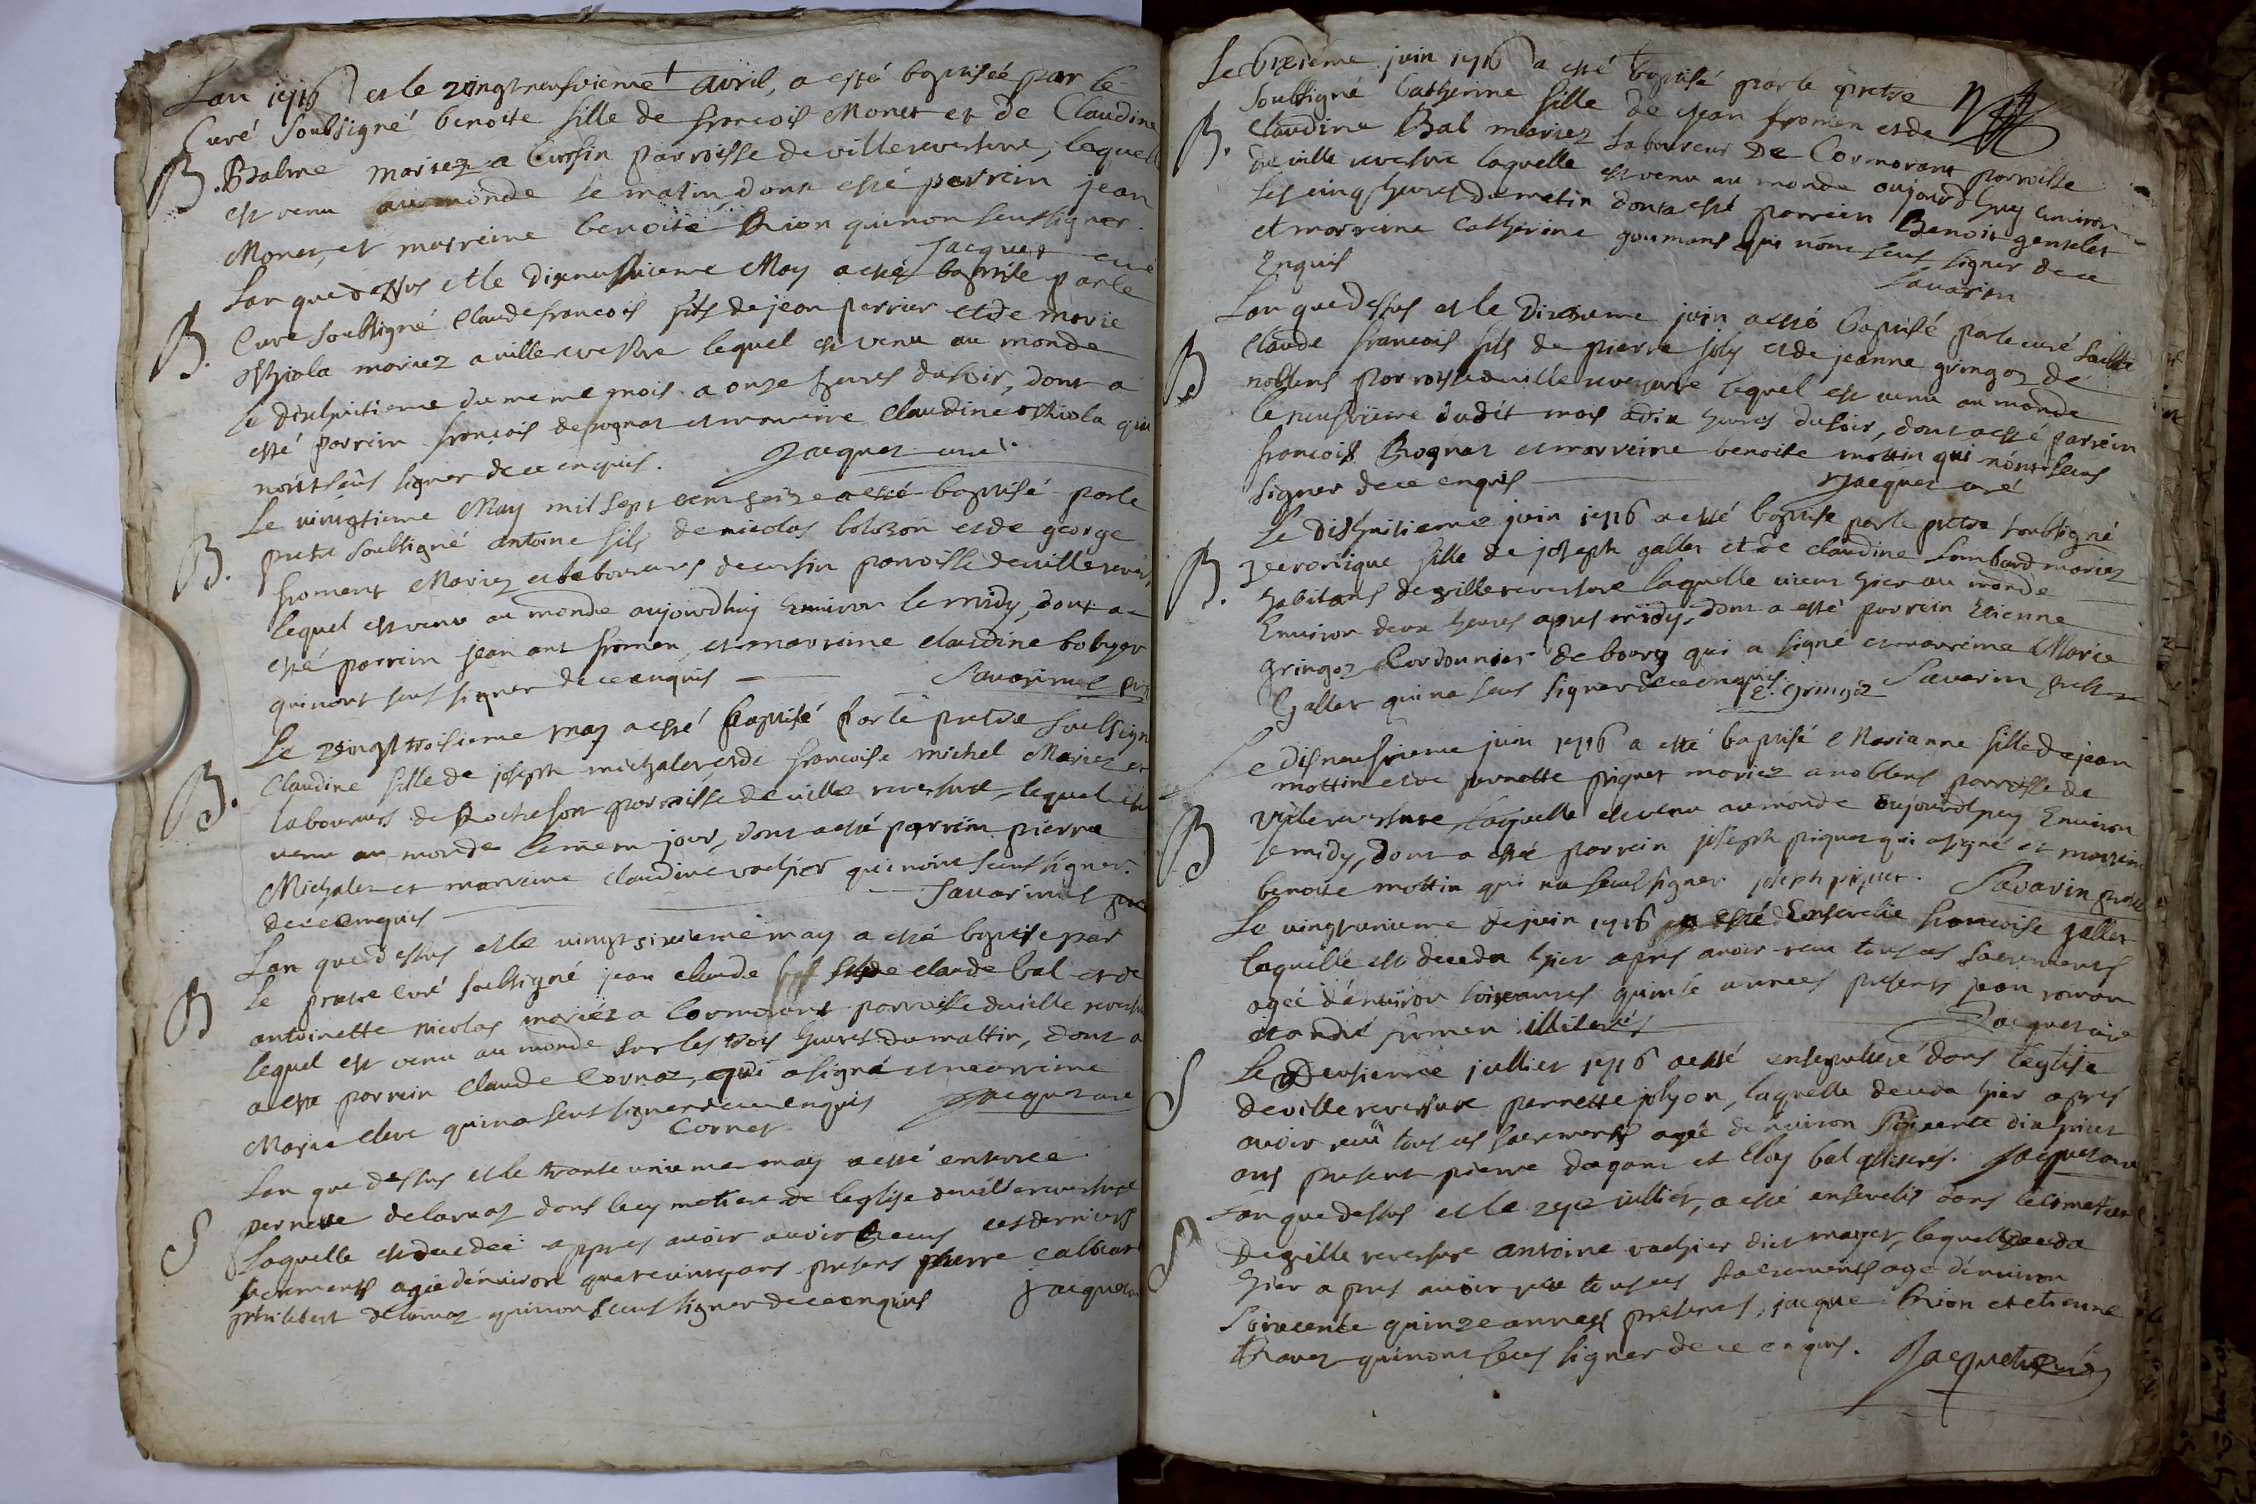 Lan 1716 et le vingtneufvieme avril, a esté baptiséé par le
Curé soubsigné benoite fille de francois Monet et de Claudine
B. Balme mariez a Cursin parroisse de villereversure, laquelle
est venu au monde le matin, dont a esté parrein jean
Monet, et marreine benoite Brion qui non seus signer.
Jacquet curé
Lan que dessus et le dixneufvieme May a esté baptisé par le
B. Curé soubsigné Claude francois fils de jean perrier et de marie
mariez a villereversure lequel est venu au monde
le dixhuitieme du meme mois a onze heures du soir, dont a
esté parrein francois derognat et marreine Claudine qui
nont seûs signer de ce enquis. Jacquet curé
Le vingtieme May mil sept cent seize a esté baptisé par le
B. pretre soubsigné antoine fils de nicolas bolozon et de george
froment Mariez et laboureurs de cursin parroisse de villerevers
lequel est venu au monde aujourdhuy Environ le midy, dont a
esté parrein jean ant fromen, et marreine claudine bobyer
qui nont seus signer de ce enquis Savarin
Le vingt troisieme may a esté baptisé par le pretre soubsigné
B. Claudine fille de joseph michalet et de francoise michel Mariez et
laboureurs de Rochefort parroisse de ville reversure, lequel est
venu au monde le mem jour, dont a esté parrein pierre
Michalet et marreine claudine vachier qui nont seus signer.
de ce enquis Savarin
Lan que dessus et le vingt sixieme may a esté baptisé par
B le pretre curé soubsigné jean claude fils de claude bal et de
antoinette nicolas mariéz a Cormorant parroisse de ville reversure
lequel est venu au monde sur les trois heures du mattin, dont a
a esté parrein Claude Cornet, qui a signé et marreine
Marie clerc qui na seus signer de ce enquis Jacquet curé
Cornet
Lan que dessus et le trante unieme may a esté enterrée
S pernette delornaz dans le cymetiere de leglise de villereversure
Laquelle est decedée appres avoir avoir receus ces derniers
sacrements agée denviron quatrevingt ans presens pierre
philibert delornaz qui non seus signer de ce enquis Jacquet
Le sixieme juin 1716 a esté baptisé par le pretre
soubsigné Catherine fille de jean fromen et de
B. Claudine Bal mariez Laboureurs De Cormorant parroisse
de ville reversure laquelle est venu au monde aujourdhuy environ
les cinq heures du matin dont a esté parrein Benoit gentelet
et marreine Catherine goumand qui nont seus signer de ce
Enquis Savarin
Lan que dessus et le Dixieme juin a esté baptisé par le curé soubs
B claude francois fils de pierre joly et de jeanne gringoz de
noblens parroisse de villereversure lequel est venu au monde
le neufvieme dudit mois a dix heures du soir, dont a esté parrein
francois Rognat et marreine benoite mottin qui nont seus
signer de ce enquis Jacquet curé
Le dishuitiemes juin 1716 a esté baptisé par le pretre soubsigné
B. veronique fille de joseph gallet et de claudine Lombard mariez
habitans de villereversure laquelle vient hier au monde
Environ deux heures apres midy, dont a esté parrein Etienne
gringoz Cordonnier de bourg qui a signé et marreine Marie
gallet qui na seus signer de ce enquis. E. gringoz Savarin pretre
Le disneufvieme juin 1716 a esté baptisé Marianne fille de jean
mottin et de pernette piquet mariez a noblens parroisse de
B villereversure laquelle est venu au monde aujourdhuy Environ
le midy, dont a esté parrein joseph piquet qui a signé et marreine
benoite mottin qui na seus signer joseph piquet. Savarin pretre
Le vingtunieme de juin 1716 a esté Ensevelie francoise gallet
laquelle est decedée hier apres avoir receu tous ces sacrements
agée denviron soixantes quinze années presents jean roman
et andré fromen illiterés Jacquet curé
Le Deusieme julliet 1716 a esté ensepulturé dans leglise
S de villereversure pernette jolyon, laquelle deceda hier apres
avoir receu tous ces sacrements agée denviron soixente dix huict
ans present pierre dagans et Eloy bal illiterés. Jacquet curé
Lan que dessus et le 29e julliet, a esté ensevelis dans le cimetiere
S de ville reversure antoine vachier dict mayet, lequel deceda
hier apres avoir receu tous ces sacrements age denviron
Soixcente quinze années presents, jacque brion et etienne
qui nont seus signer de ce enquis. Jacquet curé